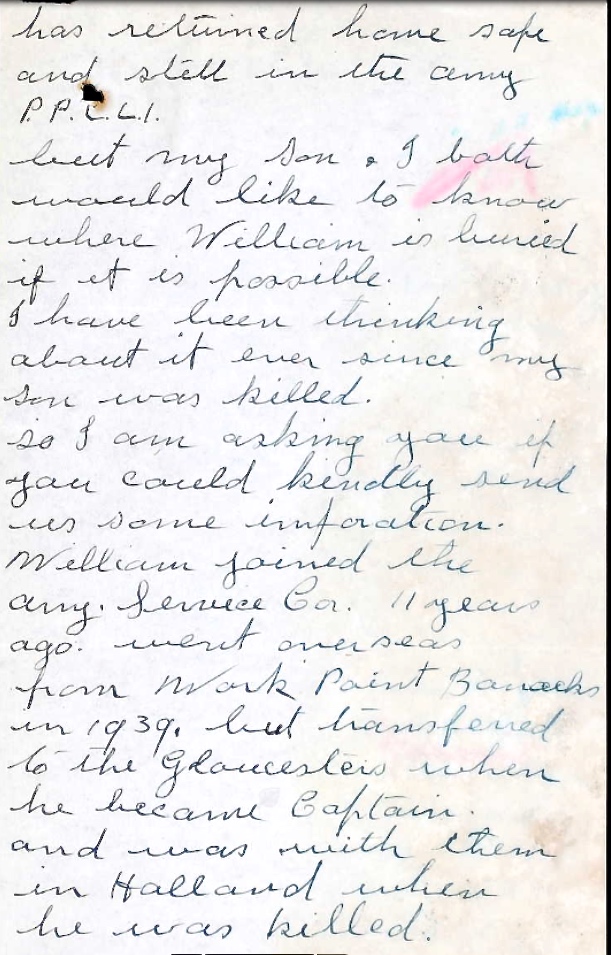 has returned home safe
and still in the army
P.P.C.L.I.
but my son & I both
would like to know
where William is buried
if it is possible.
I have been thinking
about it ever since my
son was killed.
so I am asking you if
you could kindly send
us some inforation.
William joined the
army. Service Co. 11 years
ago. went overseas
from Work Point Barracks
in 1939. but transferred
to the Gloucesters when
he became Captain.
and was with them
in Holland when
he was killed.